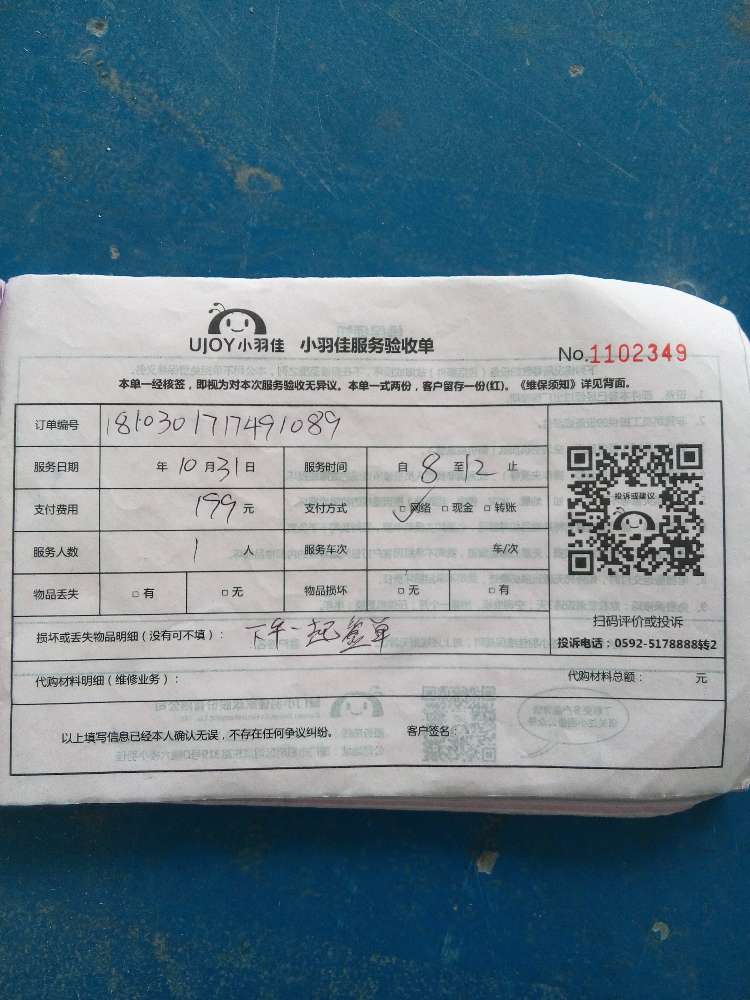 UJOY小羽佳 小羽佳服务验收单
No.1102349
本单一经核签，即视为对本次服务验收无异议。本单一式两份，客户留存一份(红)。《维保须知》详见背面。
订单编号 181030171749​1089
服务日期 年10月31日 服务时间 自8至12止
支付费用 199元 支付方式 □网络 □现金 □转账
服务人数 1人 服务车次 车/次
物品丢失 □有 □无 物品损坏 □无 □有
投诉或建议
扫码评价或投诉
投诉电话：0592-5178888转2
损坏或丢失物品明细（没有可不填）： 下午一起签单
代购材料明细（维修业务）： 代购材料总额： 元
以上填写信息已经本人确认无误，不存在任何争议纠纷。 客户签名：